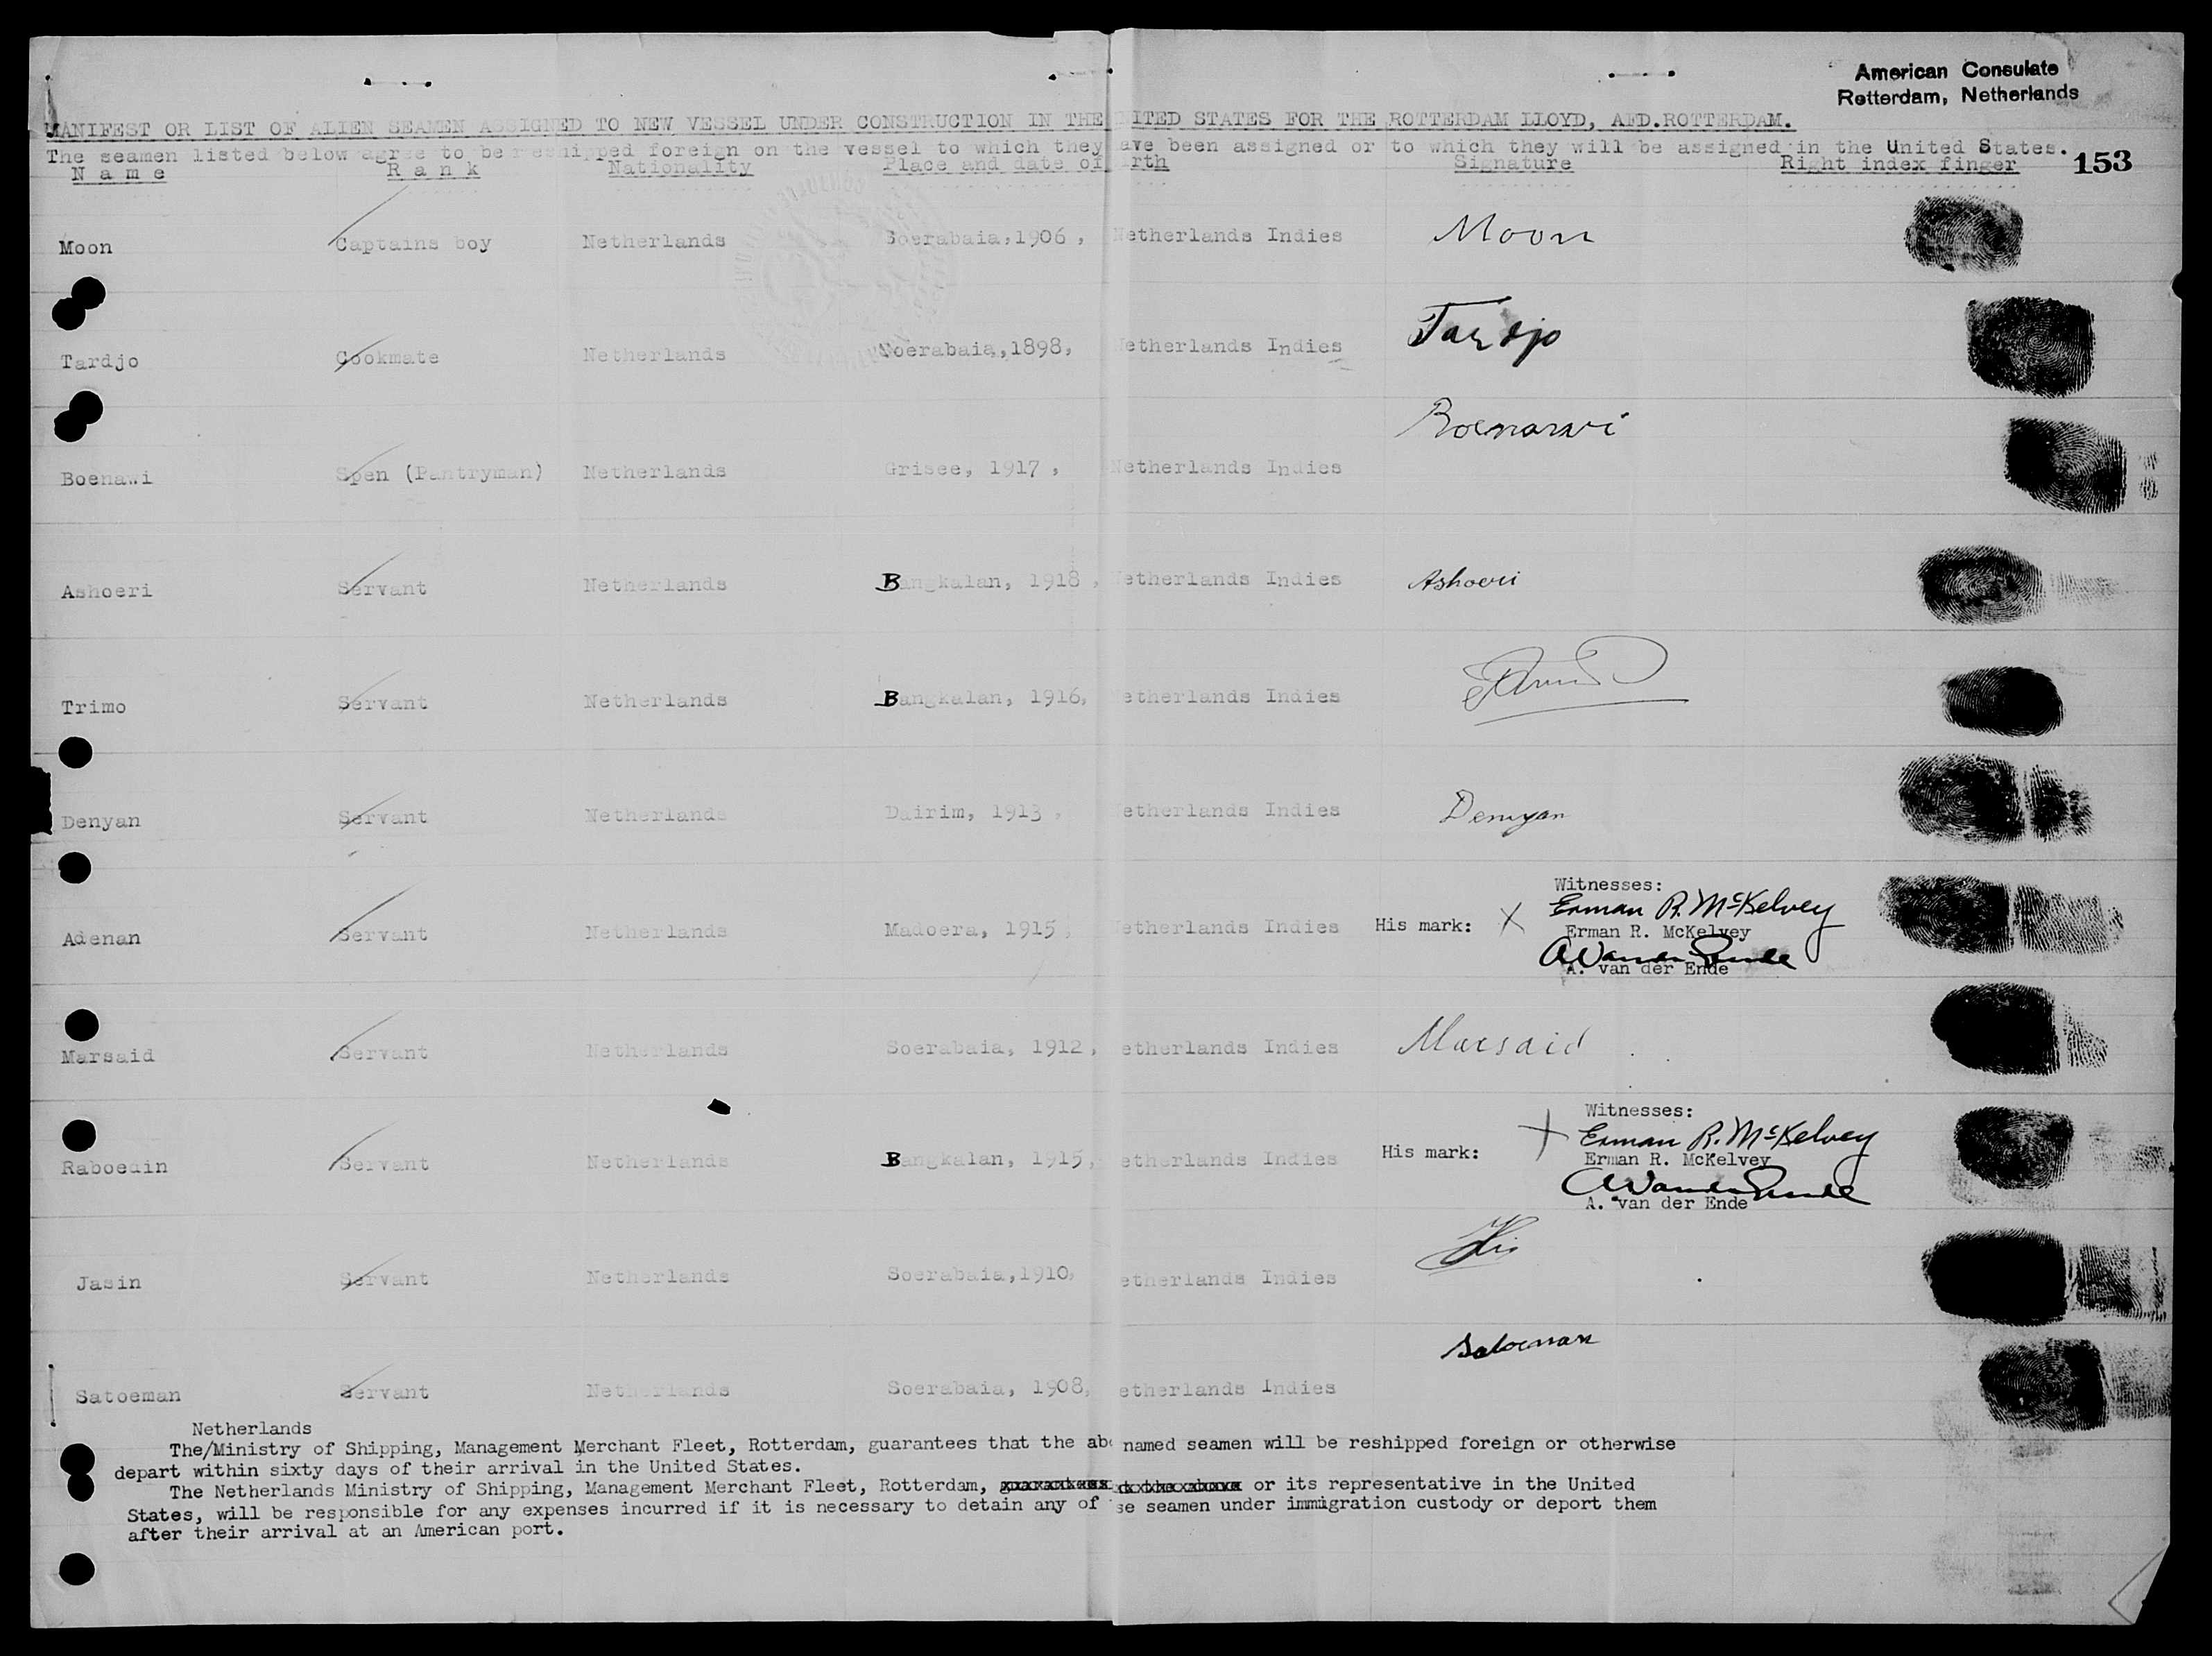 American Consulate
Rotterdam, Netherlands
MANIFEST OR LIST OF ALIEN SEAMEN ASSIGNED TO NEW VESSEL UNDER CONSTRUCTION IN THE ITED STATES FOR THE ROTTERDAM LLOYD, AFD.ROTTERDAM.
The seamen listed below agree to be reshipped foreign on the vessel to which they ave been assigned or to which they will be assigned in the United States.
Name Rank Nationality Place and date of irth Signature Right index finger 153
Moon Captains boy Netherlands Soerabaia,1906, Netherlands Indies Moon
Tardjo Cookmate Netherlands Soerabaia,1898, Netherlands Indies Tardjo
Boenawi
Boenawi Spen (Pantryman) Netherlands Grisee, 1917, Netherlands Indies
Ashoeri Servant Netherlands Bangkalan, 1918, Netherlands Indies Ashoeri
Trimo Servant Netherlands Bangkalan, 1916, etherlands Indies
Denyan Servant Netherlands Dairim, 1913, etherlands Indies Denyan
Witnesses:
Erman R. McKelvey
Adenan Servant Netherlands Madoera, 1915, etherlands Indies His mark: X Erman R. McKelvey
A van der Ende
A. van der Ende
Marsaid Servant Netherlands Soerabaia, 1912, etherlands Indies Marsaid
Witnesses:
Erman R. McKelvey
Raboedin Servant Netherlands Bangkalan, 1915, etherlands Indies His mark: X Erman R. McKelvey
A van der Ende
A. van der Ende
Jasin Servant Netherlands Soerabaia,1910, etherlands Indies
Satoeman
Satoeman Servant Netherlands Soerabaia, 1908, etherlands Indies
Netherlands
The/Ministry of Shipping, Management Merchant Fleet, Rotterdam, guarantees that the abo named seamen will be reshipped foreign or otherwise
depart within sixty days of their arrival in the United States.
The Netherlands Ministry of Shipping, Management Merchant Fleet, Rotterdam, or its representative in the United
States, will be responsible for any expenses incurred if it is necessary to detain any of se seamen under immigration custody or deport them
after their arrival at an American port.